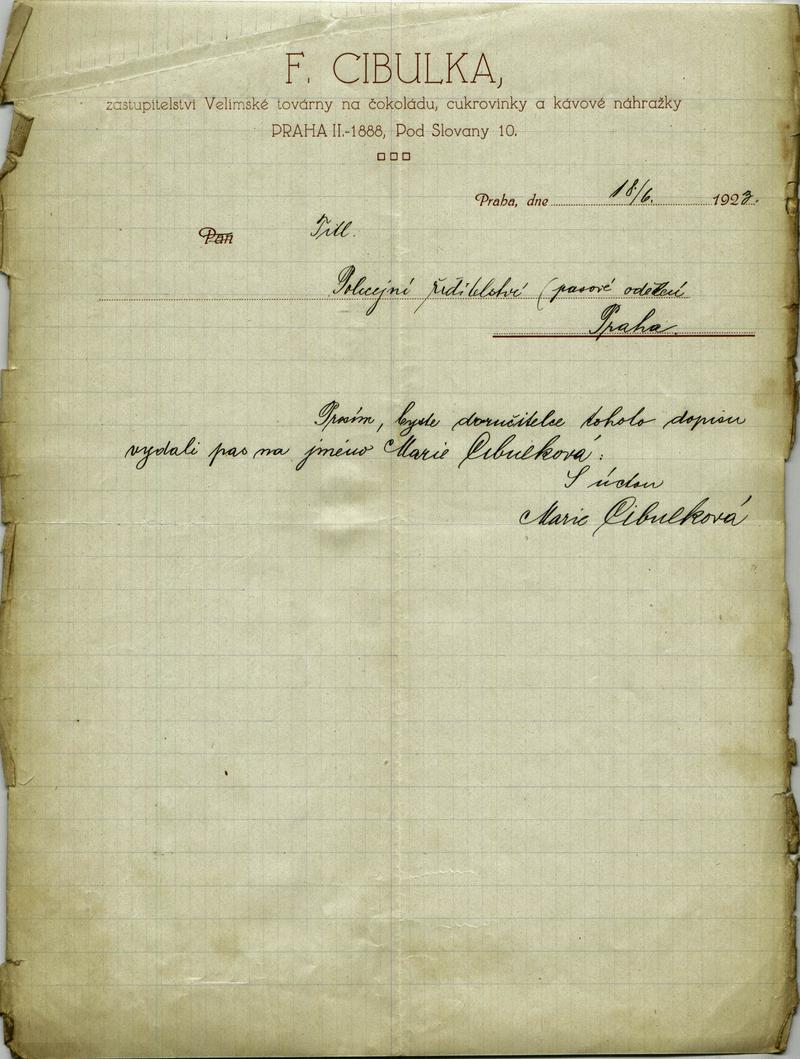 F. CIBULKA,
zastupitelství Velimské továrny na čokoládu, cukrovinky a kávové náhražky
PRAHA II.-1888, Pod Slovany 10.
Praha, dne 18/6. 1923.
Pan Titl.
Policejní ředitelství (pasové odělení
Praha.
Prosím, byste doručitelce toholo dopisu
vydali pas na jméno Marie Cibulková:
S úctou
Marie Cibulková